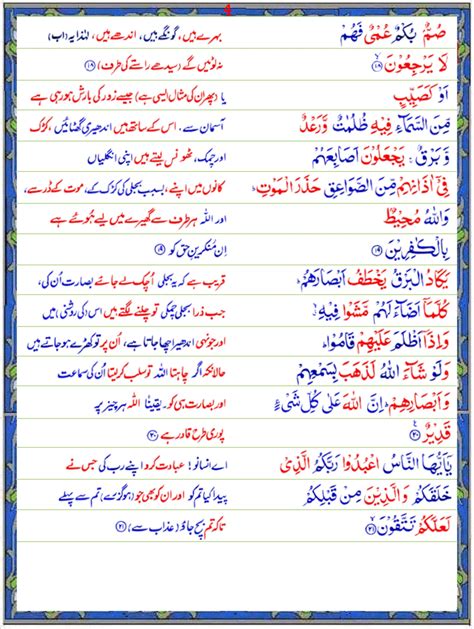 4
صُمٌّۢ بُكْمٌ عُمْیٌ فَهُمْ بہرے ہیں، گونگے ہیں، اندھے ہیں، لہٰذا یہ (اب)
لَا یَرْجِعُوْنَ ۙ﴿۱۸﴾ نہ لوٹیں گے (سیدھے راستے کی طرف) (۱۸)
اَوْ كَصَیِّبٍ یا (پھر ان کی مثال ایسی ہے) جیسے زور کی بارش ہو رہی ہے
مِّنَ السَّمَآءِ فِیْهِ ظُلُمٰتٌ وَّرَعْدٌ آسمان سے، اس کے ساتھ ہیں، اندھیری گھٹائیں، کڑک
وَّبَرْقٌ ۚ یَجْعَلُوْنَ اَصَابِعَهُمْ اور چمک، ٹھونس لیتے ہیں اپنی انگلیاں
فِیْۤ اٰذَانِهِمْ مِّنَ الصَّوَاعِقِ حَذَرَ الْمَوْتِ ؕ کانوں میں اپنے، بسبب بجلی کی کڑک، موت کے ڈر سے،
وَاللّٰهُ مُحِیْطٌۢ اور اللہ ہر طرف سے گھیرے میں لیے ہوئے ہے
بِالْكٰفِرِیْنَ ﴿۱۹﴾ اِن منکرینِ حق کو (۱۹)
یَكَادُ الْبَرْقُ یَخْطَفُ اَبْصَارَهُمْ ؕ قریب ہے کہ یہ بجلی اُچک لے جائے بصارت اُن کی،
كُلَّمَاۤ اَضَآءَ لَهُمْ مَّشَوْا فِیْهِ ۙ جب ذرا بجلی چمکی تو چلنے لگتے ہیں، اس کی روشنی میں
وَاِذَاۤ اَظْلَمَ عَلَیْهِمْ قَامُوْا ؕ اور جونہی اندھیرا چھا جاتا ہے، اُن پر تو کھڑے ہو جاتے ہیں
وَلَوْ شَآءَ اللّٰهُ لَذَهَبَ بِسَمْعِهِمْ حالانکہ اگر چاہتا اللہ تو سلب کر لیتا اُن کی سماعت
وَاَبْصَارِهِمْ ؕ اِنَّ اللّٰهَ عَلٰی كُلِّ شَیْءٍ اور بصارت ہی کو، یقینًا اللہ ہر چیز پر
قَدِیْرٌ ﴿۲۰﴾ پوری طرح قادر ہے (۲۰)
یٰۤاَیُّهَا النَّاسُ اعْبُدُوْا رَبَّكُمُ الَّذِیْ اے انسانو! عبادت کرو اپنے رب کی جس نے
خَلَقَكُمْ وَالَّذِیْنَ مِنْ قَبْلِكُمْ پیدا کیا تم کو اور ان کو بھی جو (ہو گزرے) تم سے پہلے
لَعَلَّكُمْ تَتَّقُوْنَ ﴿۲۱﴾ تاکہ تم بچ جاؤ (عذاب سے) (۲۱)